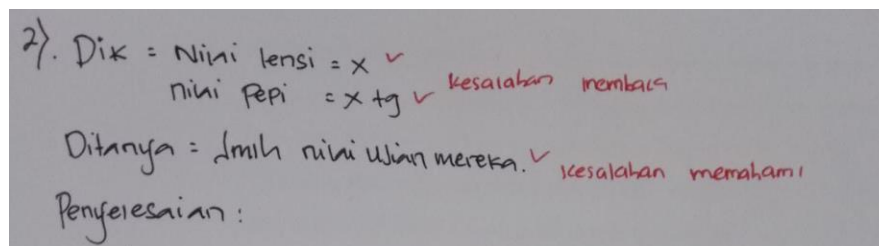 2). Dik = Nilai lensi = x ✓
nilai Pepi = x + 9 ✓ kesalahan membaca
Ditanya = Jmlh nilai Ujian mereka. ✓ kesalahan memahami
Penyelesaian :